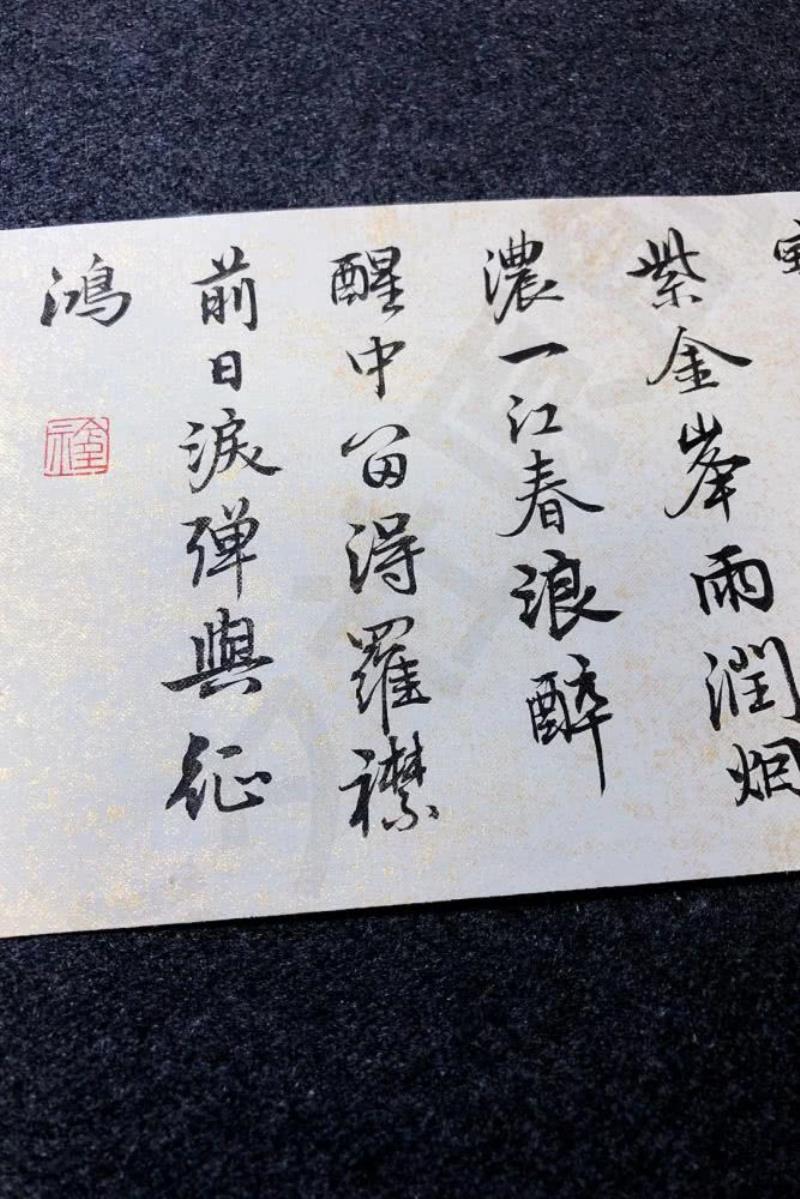 紫金峯雨潤烟
濃一江春浪醉
醒中留得羅襟
前日淚彈與征
鴻